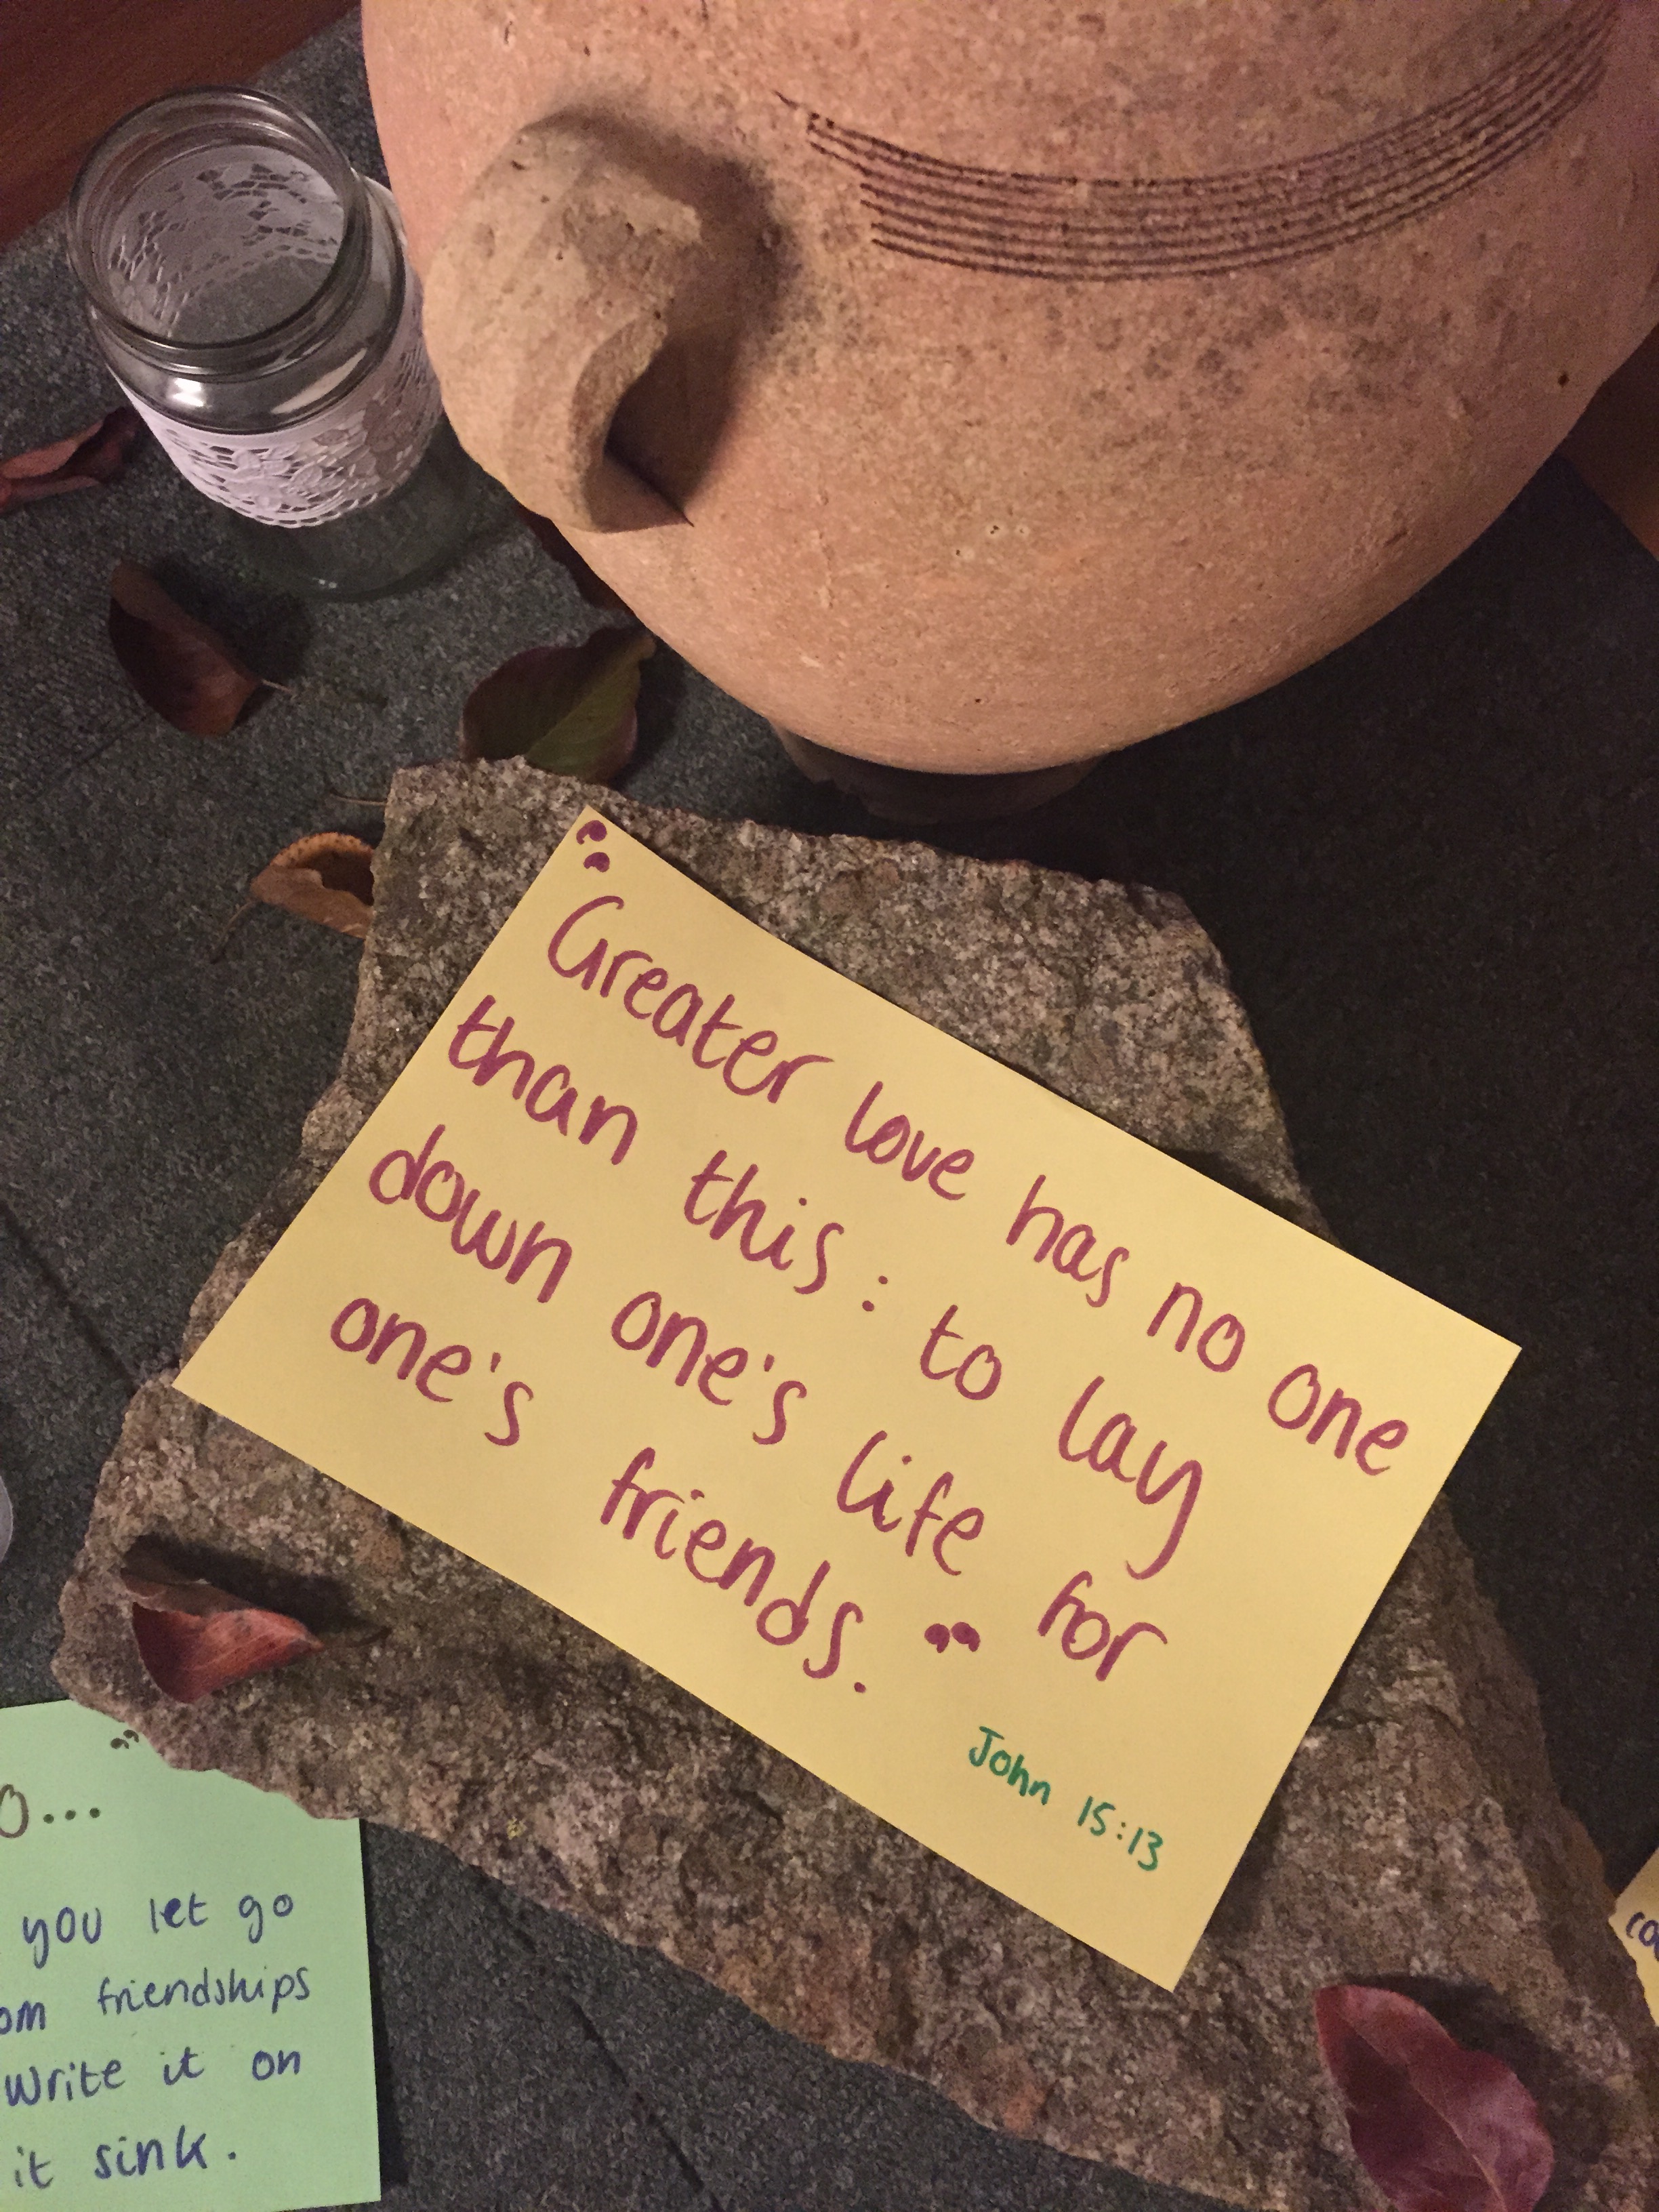 “Greater love has no one
than this: to lay
down one's life for
one's friends.”
John 15:13
”
O...
you let go
om friendships
write it on
it sink.
co